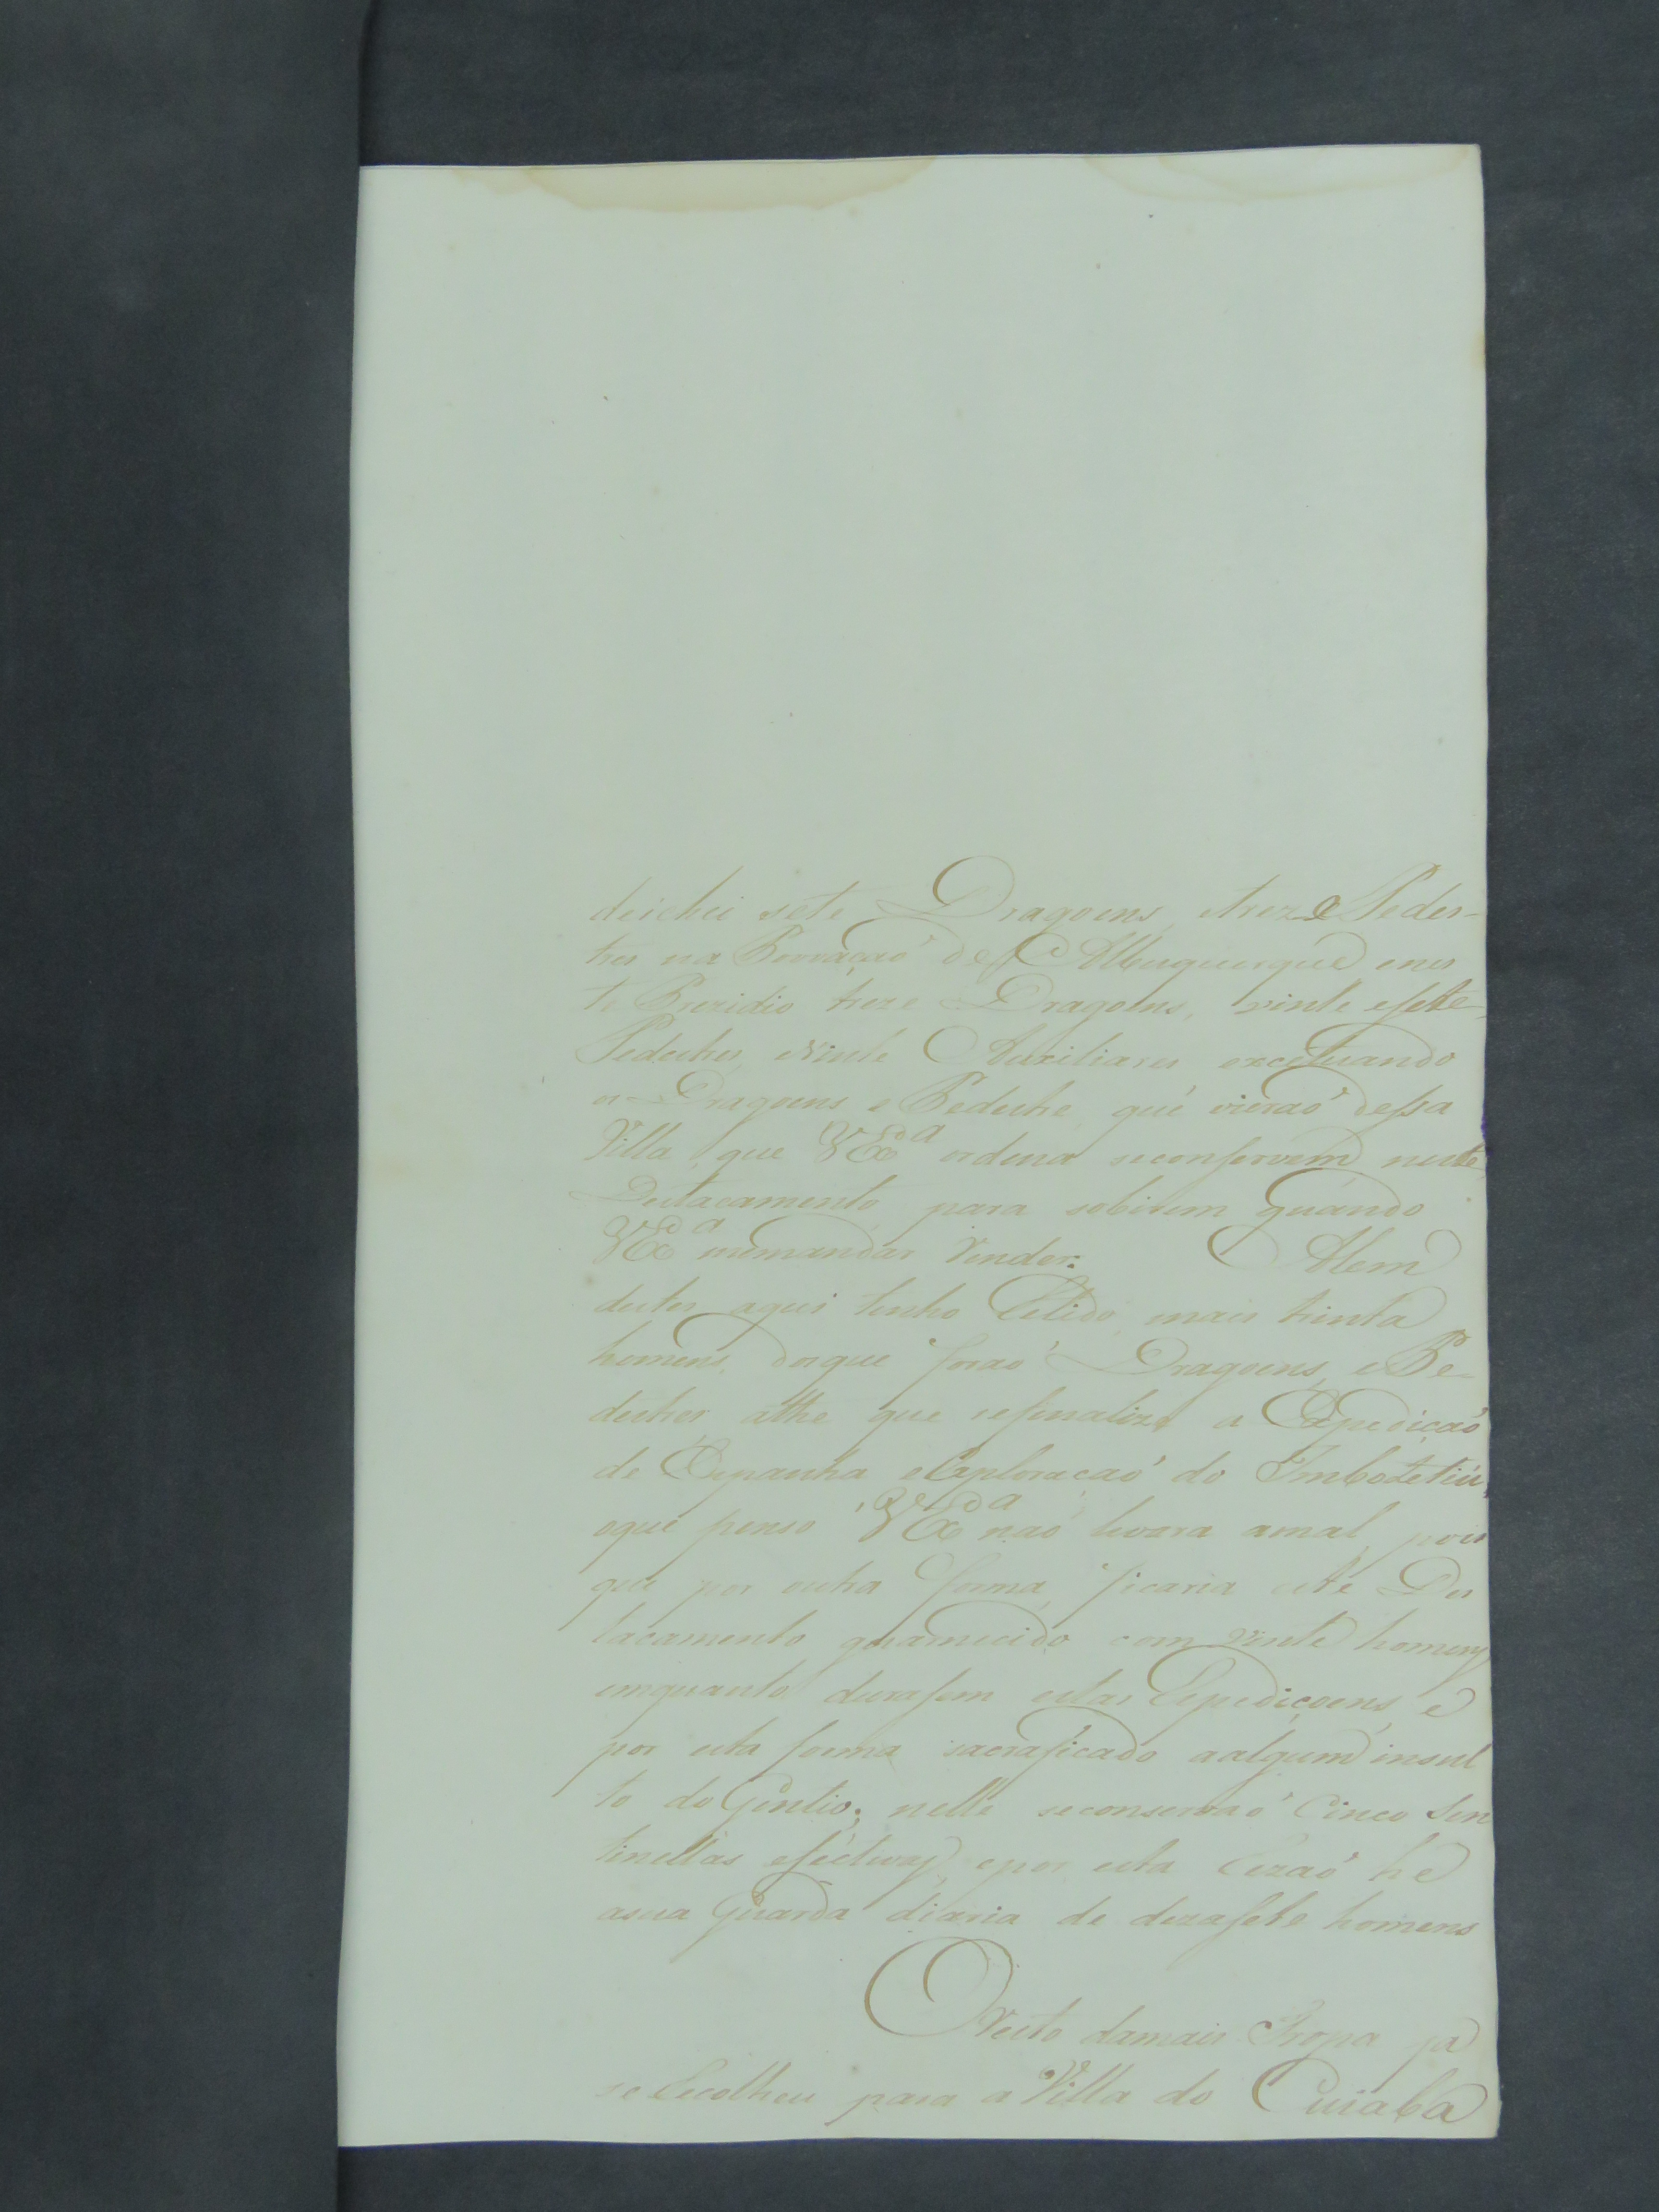 deichei sete Dragoens, etreze Pedes-
tres na Povvaçaó de Albuquerque enes
te Prezidio treze Dragoens, vinte esete
Pedestres, evinte Auxiliares excetuando
os Dragoens e Pedestre, que vieraó dessa
Villa, que VExª ordena seconservem neste
Destacamento para sobirem quando
VExª memandar Render. Alem
destes aqui tenho Retido mais trinta
homens, dosque foraó Dragoens, e Pe-
destres athe que sefinalize a Expediçaó
de Espanha eExploracaó do Imbotetiú,
oque penso VExª naó levara amal, pois
que por outra forma, ficaria este Des
tacamento guarnecido com vinte homens
emquanto durasem estas Expediçoens, e
por esta forma sacraficado aalgum insul
to do Gentio; nelle seconservaó Cinco Sen
tinellas efectivas, epor esta Rezaó hé
asua Guarda diaria de dezasete homens
O Resto damais Tropa já
se Recolheu para a Villa do Cuiabá